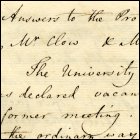 Answers to the Pro
Mr Clow & M
The University
as declared vacan
former meeting
the ordinary wa